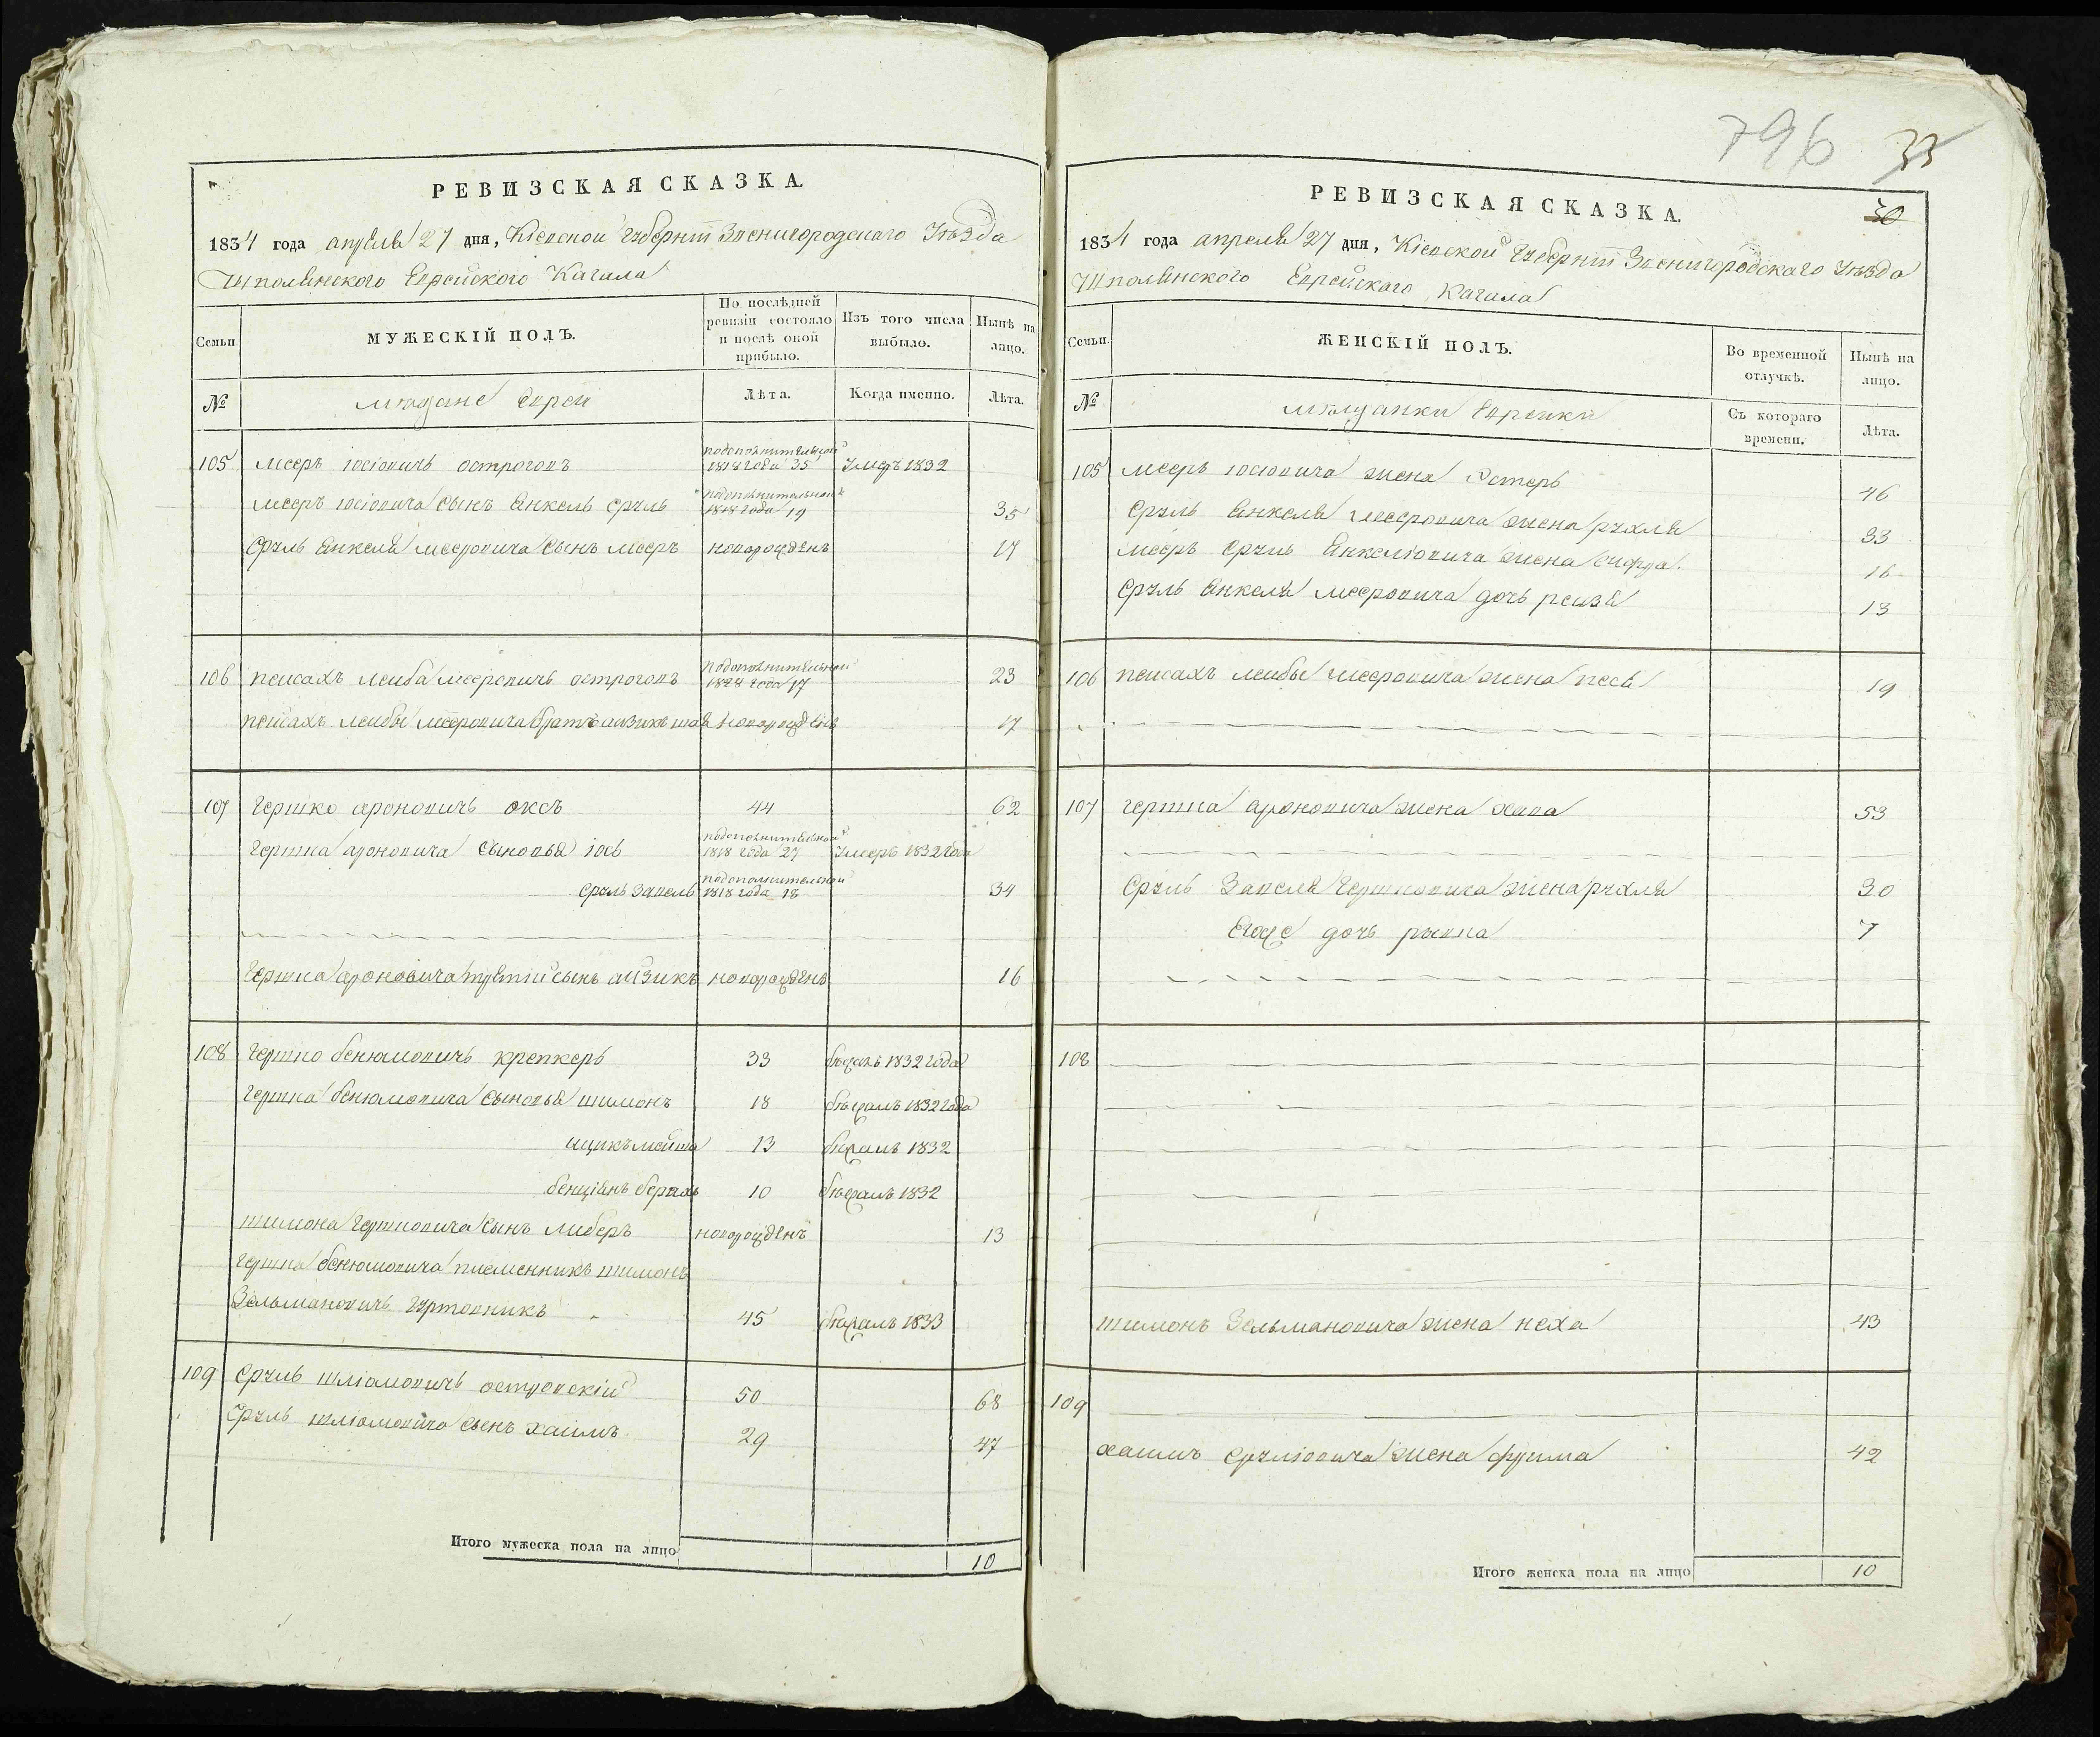 РЕВИЗСКАЯ СКАЗКА.
1834 года апреля 27 дня, Кіевской Губерніи Звенигородскаго Уѣзда
Шполянского Еврейского Кагала
Семьи
МУЖЕСКІЙ ПОЛЪ.
По послѣдней ревизіи состояло и послѣ оной прибыло.
Изъ того числа выбыло.
Нынѣ на лицо.
№
мѣщане евреи
Лѣта.
Когда именно.
Лѣта.
105 мееръ іосіовичъ остроговъ подополнительной 1818 года 35 Умеръ 1832
мееръ іосіовича сынъ янкель сруль подополнительной 1818 года 19 35
Сруль янкеля мееровича сынъ мееръ новорожденъ 17
106 пейсахъ лейба мееровичъ остроговъ подополнительной 1828 года 17 23
пейсахъ лейбы мееровича братъ айзикъ шая новорожденъ 17
107 Гершко ароновичъ оксъ 44 62
Гершка ароновича сыновья іось подополнительной 1818 года 27 Умеръ 1832 года
сруль завель подополнительной 1818 года 18 34
Гершка ароновича третій сынъ айзикъ новорожденъ 16
108 Гершко бенюмовичъ крепкеръ 33 бѣжалъ 1832 года
Гершка бенюмовича сыновья шимонъ 18 бѣжалъ 1832 года
ицикъ мейша 13 бѣжалъ 1832
бенціянъ берахъ 10 бѣжалъ 1832
шимона Гершковича сынъ либеръ новорожденъ 13
Гершка бенюмовича племенникъ шимонъ
Зельмановичъ Гуртовникъ 45 бѣжалъ 1833
109 Сруль шліомовичъ островскій 50 68
Сруль шліомовича сынъ хаимъ 29 47
Итого мужеска пола на лицо 10
796 33
30
РЕВИЗСКАЯ СКАЗКА.
1834 года апреля 27 дня, Кіевской Губерніи Звенигородскаго Уѣзда
Шполянского Еврейскаго Кагала
Семьи.
ЖЕНСКІЙ ПОЛЪ.
Во временной отлучкѣ.
Нынѣ на лицо.
№
мѣщанки Еврейки
Съ котораго времени.
Лѣта.
105 мееръ іосіовича жена Эстеръ 46
Сруль янкеля мееровича жена рухля 33
мееръ сруль янкеліовича жена сифра 16
Сруль янкеля мееровича дочь рейзя 13
106 пейсахъ лейбы мееровича жена песя 19
107 гершка ароновича жена хава 53
Сруль Завеля Гершковича жена рухля 30
Егоже дочь рывка 7
108
шимонъ Зельмановича жена неха 43
109
хаимъ Срулiовича жена фрима 42
Итого женска пола на лицо 10